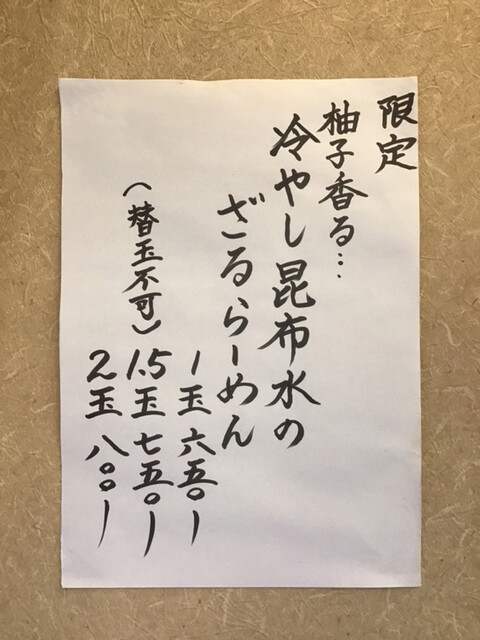 限定
柚子香る…
冷やし昆布水の
ざるらーめん
1玉 六五〇ー
1.5玉 七五〇ー
2玉 八〇〇ー
(替玉不可)